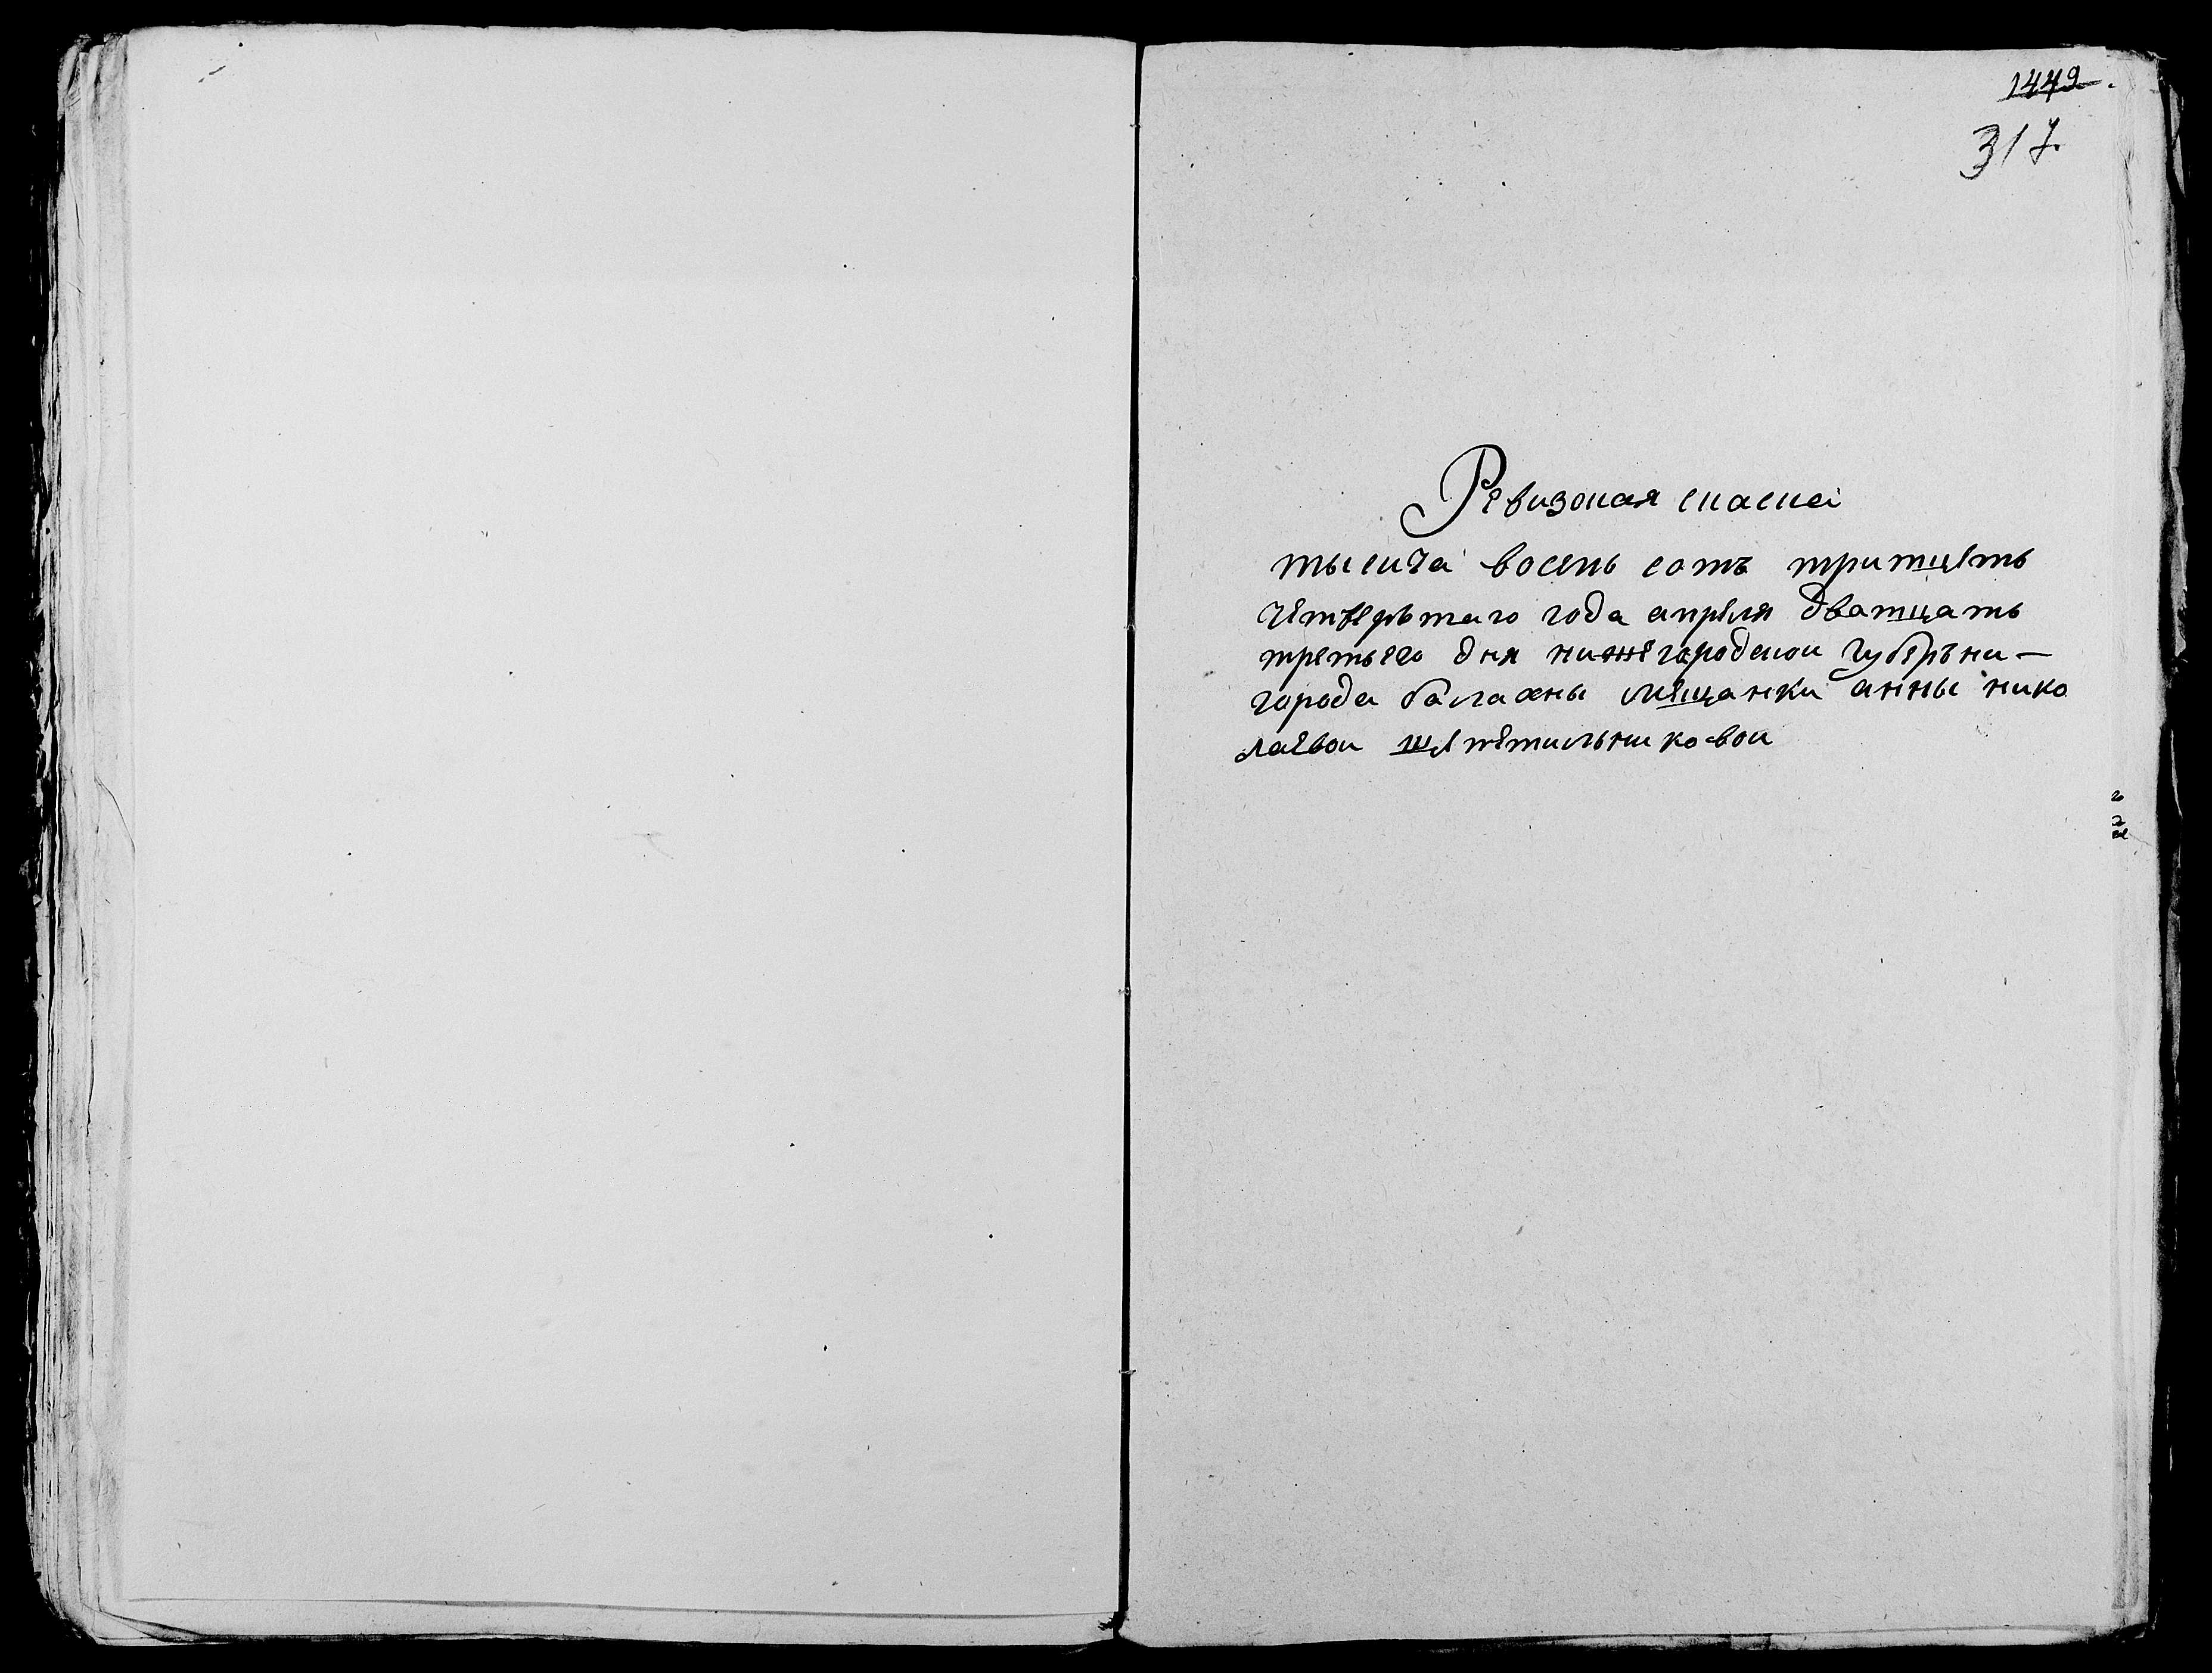 1449.
317.
Ревизокая скаска
тысича восемь сотъ тритцеть
четверьтаго года апреля дватцать
третьего дня нижегородскои губерьни —
города балахны мещанки анны нико
лаевои щепетильниковои